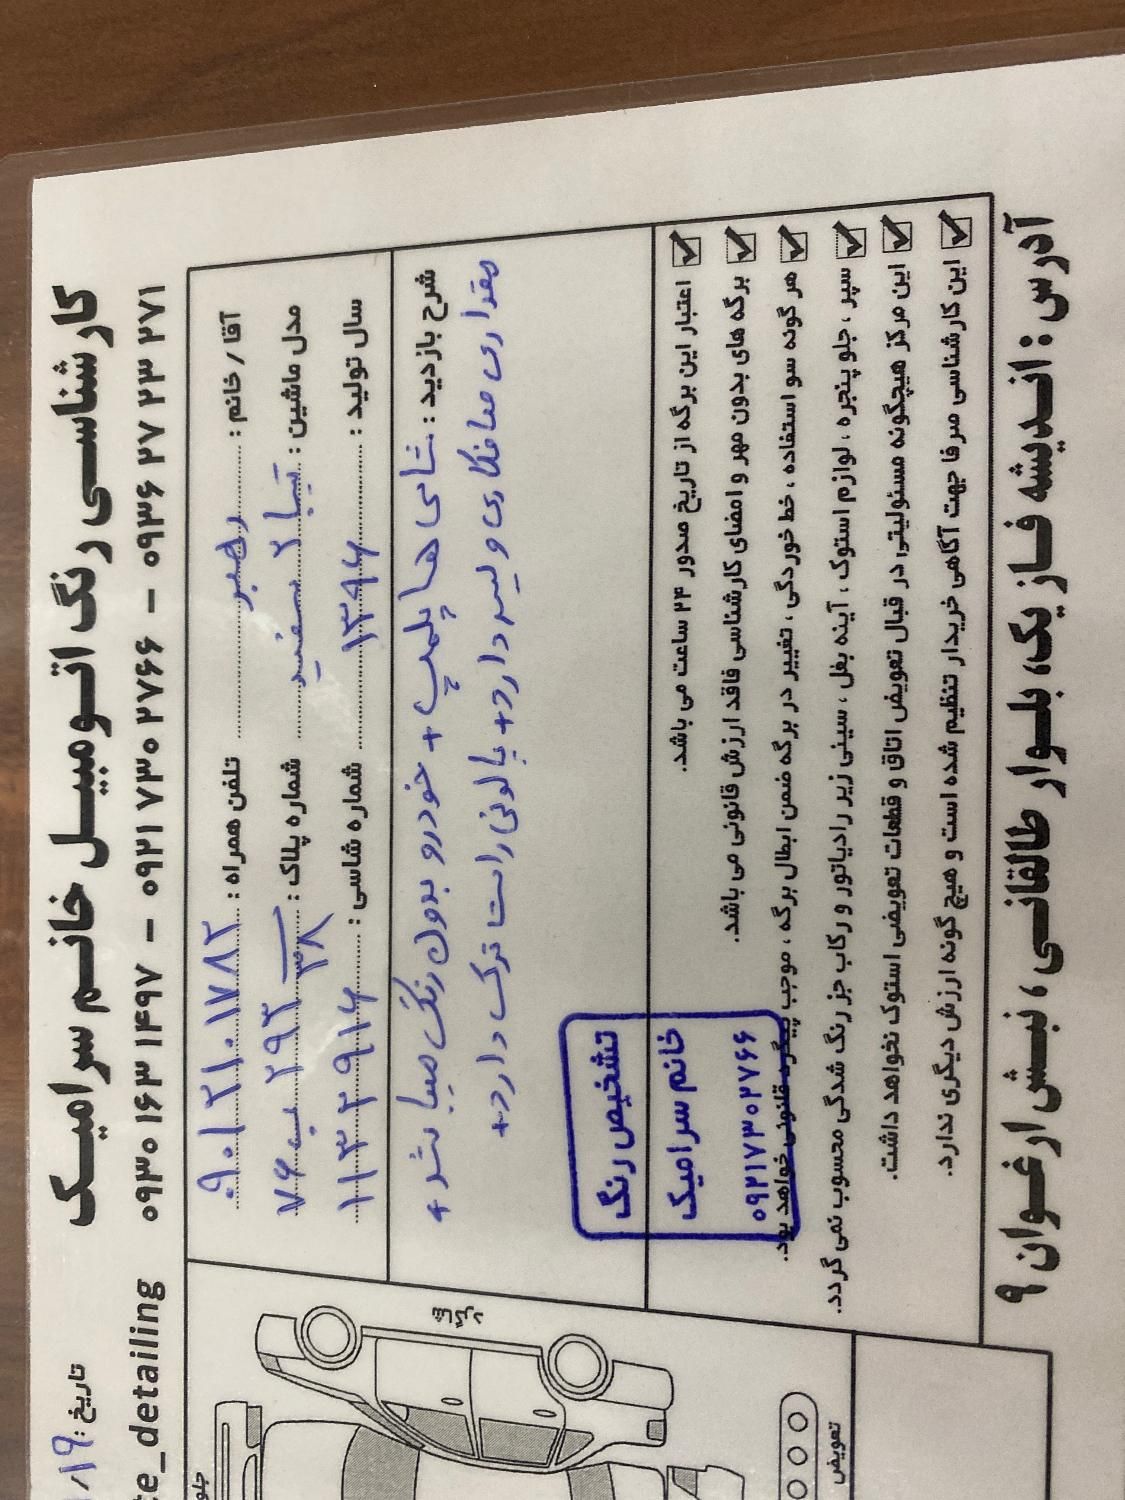 کارشناسی رنگ اتومبیل خانم سرامیک
۰۹۳۰ ۱۶۳ ۱۴۹۷ – ۰۹۲۱ ۷۳۰ ۲۷۶۶ – ۰۹۳۶ ۲۷ ۲۳ ۲۷۱
تاریخ: /۱۹
te_detailing
آقا / خانم : رهبر تلفن همراه : ۰۹۰۱۲۱۰۱۷۸۲
مدل ماشین : تیبا ۲ سفید شماره پلاک : ۷۶ ب ۲۹۳ ۳۸
سال تولید : ۱۳۹۶ شماره شاسی : ۱۱۳۲۹۱۶
شرح بازدید : شاسی ها پلمپ + خودرو بدون رنگ میباشد +
مقداری صافکاری و لیسه دارد + پالونی راست ترک دارد +
تشخیص رنگ
خانم سرامیک
۰۹۲۱۷۳۰۲۷۶۶
اعتبار این برگه از تاریخ صدور ۲۴ ساعت می باشد.
برگه های بدون مهر و امضای کارشناسی فاقد ارزش قانونی می باشد.
هر گونه سو استفاده ، خط خوردگی ، تغییر در برگه ضمن ابطال برگه ، موجب پیگرد قانونی خواهد بود.
سپر ، جلو پنجره ، لوازم استوک ، آینه بغل ، سینی زیر رادیاتور و رکاب جز رنگ شدگی محسوب نمی گردد.
این مرکز هیچگونه مسئولیتی در قبال تعویض اتاق و قطعات تعویضی استوک نخواهد داشت.
این کارشناسی صرفا جهت آگاهی خریدار تنظیم شده است و هیچ گونه ارزش دیگری ندارد.
آدرس : اندیشه فاز یک، بلوار طالقانی ، نبش ارغوان ۹
جلو
تعویض